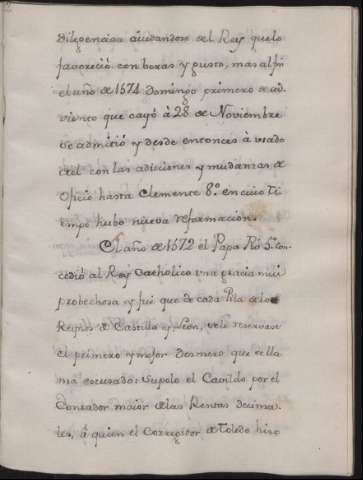 diligencias aiudandose del Rey que lo
favoreció con boxas y gusto, mas al fin
el año de 1574 domingo primero de ad
viento que cayó à 28 de Noviembre
se admitió y desde entonces à usado
del con las adiciones y mudanzas de
Oficio hasta Clemente 8.º en cuio Ti
empo hubo nueva reformacion.
El año de 1572 el Papa Pio 5.º con
cedió al Rey Catholico una gracia mui
probechosa y fué que de cada Pila de los
Reynos de Castilla y Leon, se le reservase
el primero y mejor desmero que se lla
ma escusado: Supolo el Cavildo por el
Contador maior de las Rentas decima
les, à quien el Corregidor de Toledo hizo